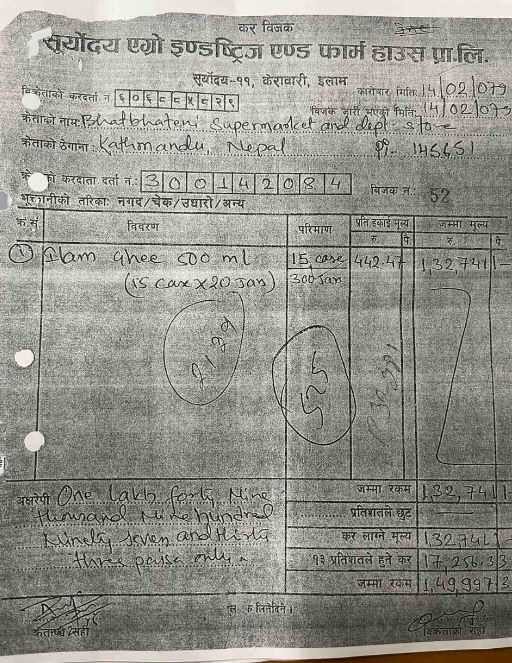 कर विजक
सूर्योदय एग्रो इण्डष्ट्रिज एण्ड फार्म हाउस प्रा.लि.
सूर्योदय-११, केरावारी, इलाम
कारोवार मिति: 14/02/079
विक्रेताको करदर्ता नं ६०६८८५८२९
विजक जारी भएको मिति: 14/02/079
क्रेताको नाम: Bhatbhateni Supermarket and dept. store
क्रेताको ठेगाना: Kathmandu, Nepal 145651
को करदाता दर्ता नं.: 300142084
विजक नं: 52
भुक्तानीको तरिका: नगद/चेक/उधारो/अन्य
क्र.सं विवरण परिमाण प्रति इकाई मूल्य जम्मा मूल्य
रु. पै. रु. पै.
① Ilam Ghee 500 ml 15 case 442.47 1,32,741 -
(15 case x 20 Jar) 300 Jar
525
जम्मा रकम 1,32,741 -
अक्षरेपी One lakh forty Nine
प्रतिशतले छुट
thousand Nine hundred
Ninety seven and thirty
कर लाग्ने मूल्य 1,32,741 -
three paisa only.
१३ प्रतिशतले हुने कर 17,256.33
जम्मा रकम 1,49,997.3
क्रेताको सही
विक्रेताको सही